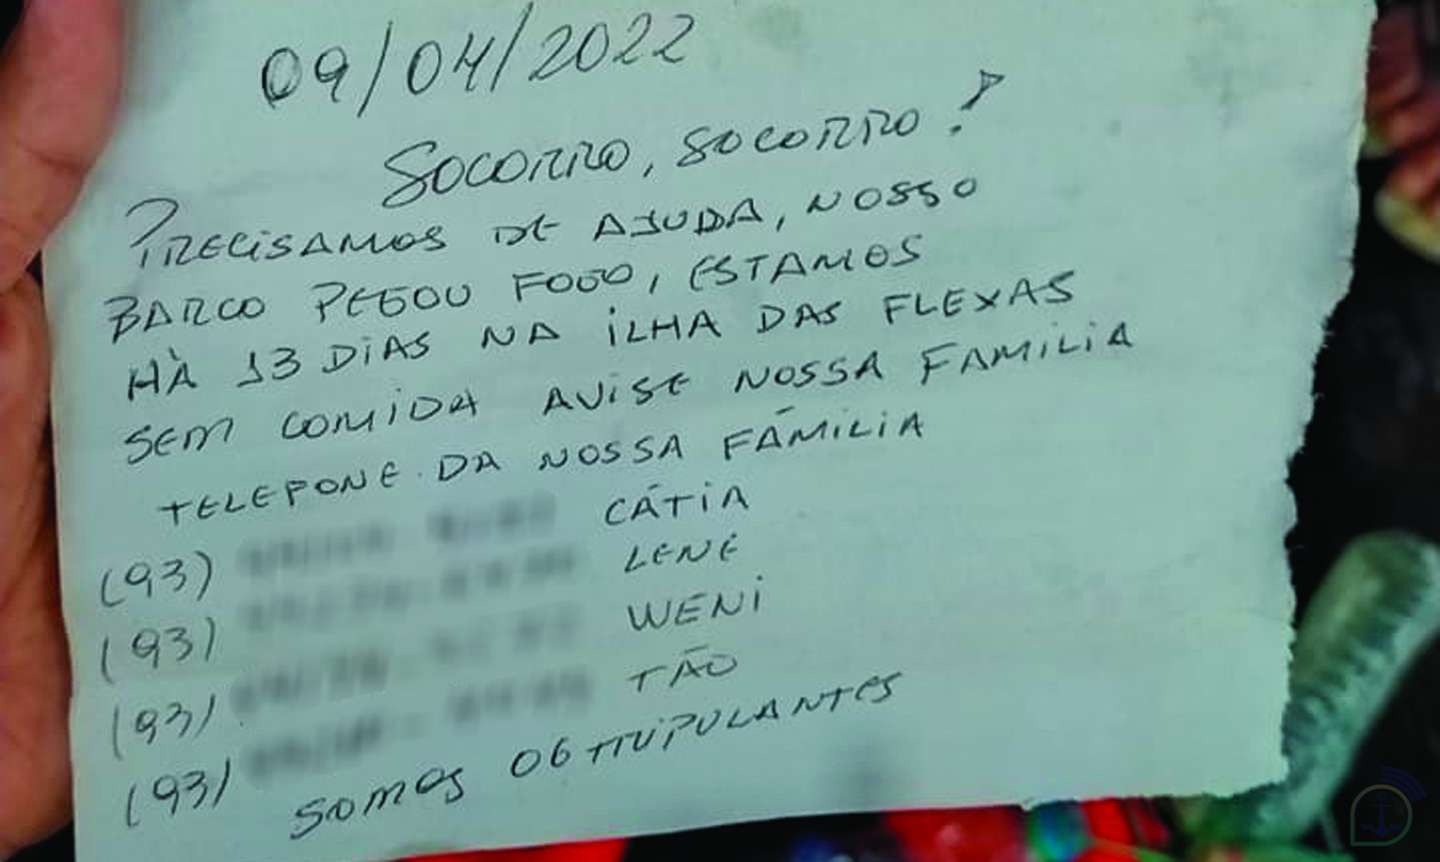 09/04/2022
SOCORRO, SOCORRO!
PRECISAMOS DE AJUDA, NOSSO
BARCO PEGOU FOGO, ESTAMOS
HÀ 13 DIAS NA ILHA DAS FLEXAS
SEM COMIDA AVISE NOSSA FAMILIA
TELEPONE. DA NOSSA FÁMILIA
(93) CÁTIA
(93) LENE
(93) WENI
(93) TÃO
SOMOS 06 TRIPULANTES